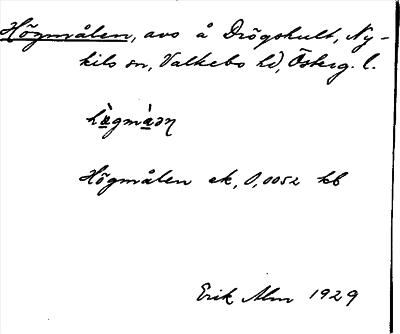 Högmålen, avs å Drögshult, Ny-
kils sn, Valkebo hd, Österg. l.
Högmålen ek, 0,0052 kb
Erik Alm 1929